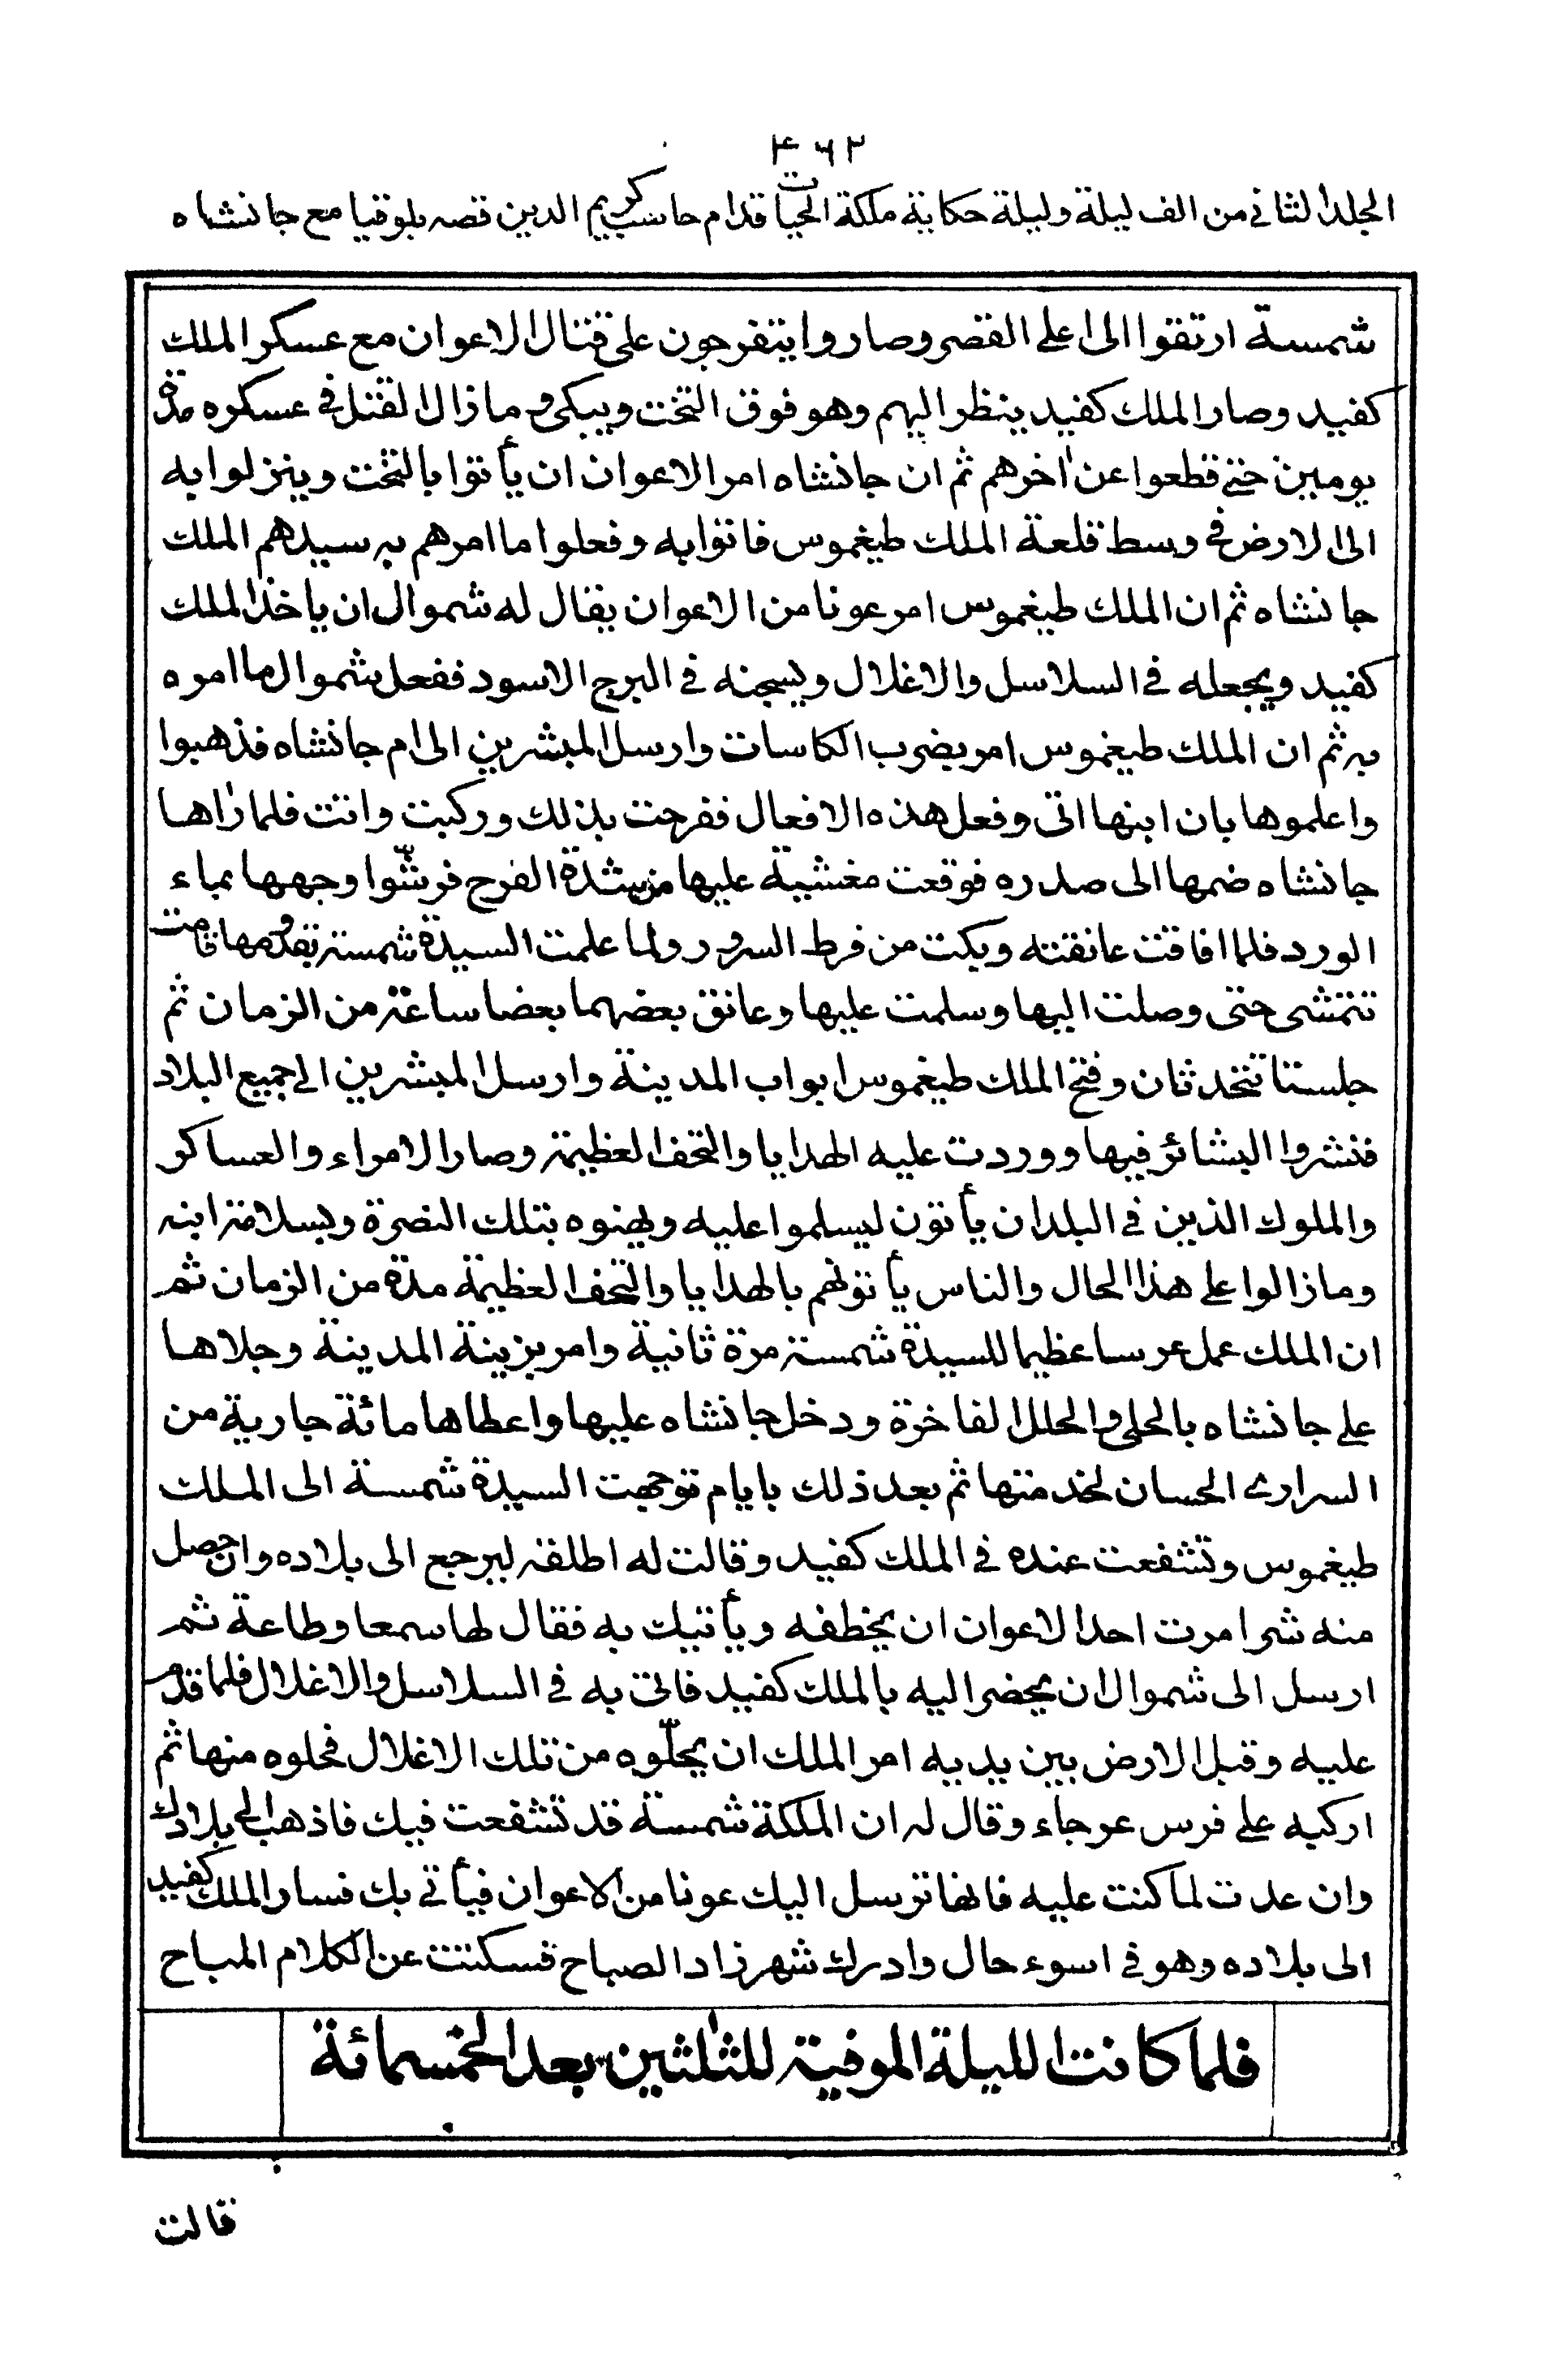 ۴۶۲
المجلد الثاني من الف ليلة وليلة حكاية ملكة الحيات قدام حاسب كريم الدين قصه بلوقيا مع جانشاه
شمسة ارتقوا الى اعلى القصر وصاروا يتفرجون على قتال الاعوان مع عسكر الملك
كفيد وصار الملك كفيد ينظر اليهم وهو فوق التخت ويبكي وما زال القتل في عسكره مدة
يومين حتى قطعوا عن اٰخرهم ثم ان جانشاه امر الاعوان ان يأتوا بالتخت وينزلوا به
الى الارض في وسط قلعة الملك طيغموس فاتوا به وفعلوا ما امرهم به سيدهم الملك
جانشاه ثم ان الملك طيغموس امر عونا من الاعوان يقال له شموال ان ياخذ الملك
كفيد ويجعله في السلاسل والاغلال ويسجنه في البرج الاسود ففعل شموال ما امره
به ثم ان الملك طيغموس امر بضرب الكاسات وارسل المبشرين الى ام جانشاه فذهبوا
واعلموها بان ابنها اتى وفعل هذه الافعال ففرحت بذلك وركبت واتت فلما راٰها
جانشاه ضمها الى صدره فوقعت مغشية عليها من شدة الفرح فرشّوا وجهها بماء
الورد فلما افاقت عانقته وبكت من فرط السرور ولما علمت السيدة شمسة بقدومها قامت
تتمشى حتى وصلت اليها وسلمت عليها وعانق بعضهما بعضا ساعة من الزمان ثم
جلستا تتحدثان وفتح الملك طيغموس ابواب المدينة وارسل المبشرين الى جميع البلاد
فنشروا البشائر فيها ووردت عليه الهدايا والتحف العظيمة وصار الامراء والعساكر
والملوك الذين في البلدان يأتون ليسلموا عليه ويهنوه بتلك النصرة وبسلامة ابنه
وما زالوا على هذا الحال والناس يأتونهم بالهدايا والتحف العظيمة مدة من الزمان ثم
ان الملك عمل عرسا عظيما للسيدة شمسة مرة ثانية وامر بزينة المدينة وجلاها
على جانشاه بالحلي والحلل الفاخرة ودخل جانشاه عليها واعطاها مائة جارية من
السراري الحسان لخدمتها ثم بعد ذلك بايام توجهت السيدة شمسة الى الملك
طيغموس وتشفعت عنده في الملك كفيد وقالت له اطلقه ليرجع الى بلاده وان حصل
منه شر امرت احد الاعوان ان يخطفه ويأتيك به فقال لها سمعا وطاعة ثم
ارسل الى شموال ان يحضر اليه بالملك كفيد فاتى به في السلاسل والاغلال فلما قدم
عليه وقبل الارض بين يديه امر الملك ان يحلّوه من تلك الاغلال فحلوه منها ثم
اركبه على فرس عرجاء وقال له ان الملكة شمسة قد تشفعت فيك فاذهب الى بلادك
وان عدت لما كنت عليه فانها ترسل اليك عونا من الاعوان فيأتي بك فسار الملك كفيد
الى بلاده وهو في اسوء حال وادرك شهرزاد الصباح فسكتت عن الكلام المباح
فلما كانت الليلة الموفية للثلٰثين بعد الخمسمائة
قالت